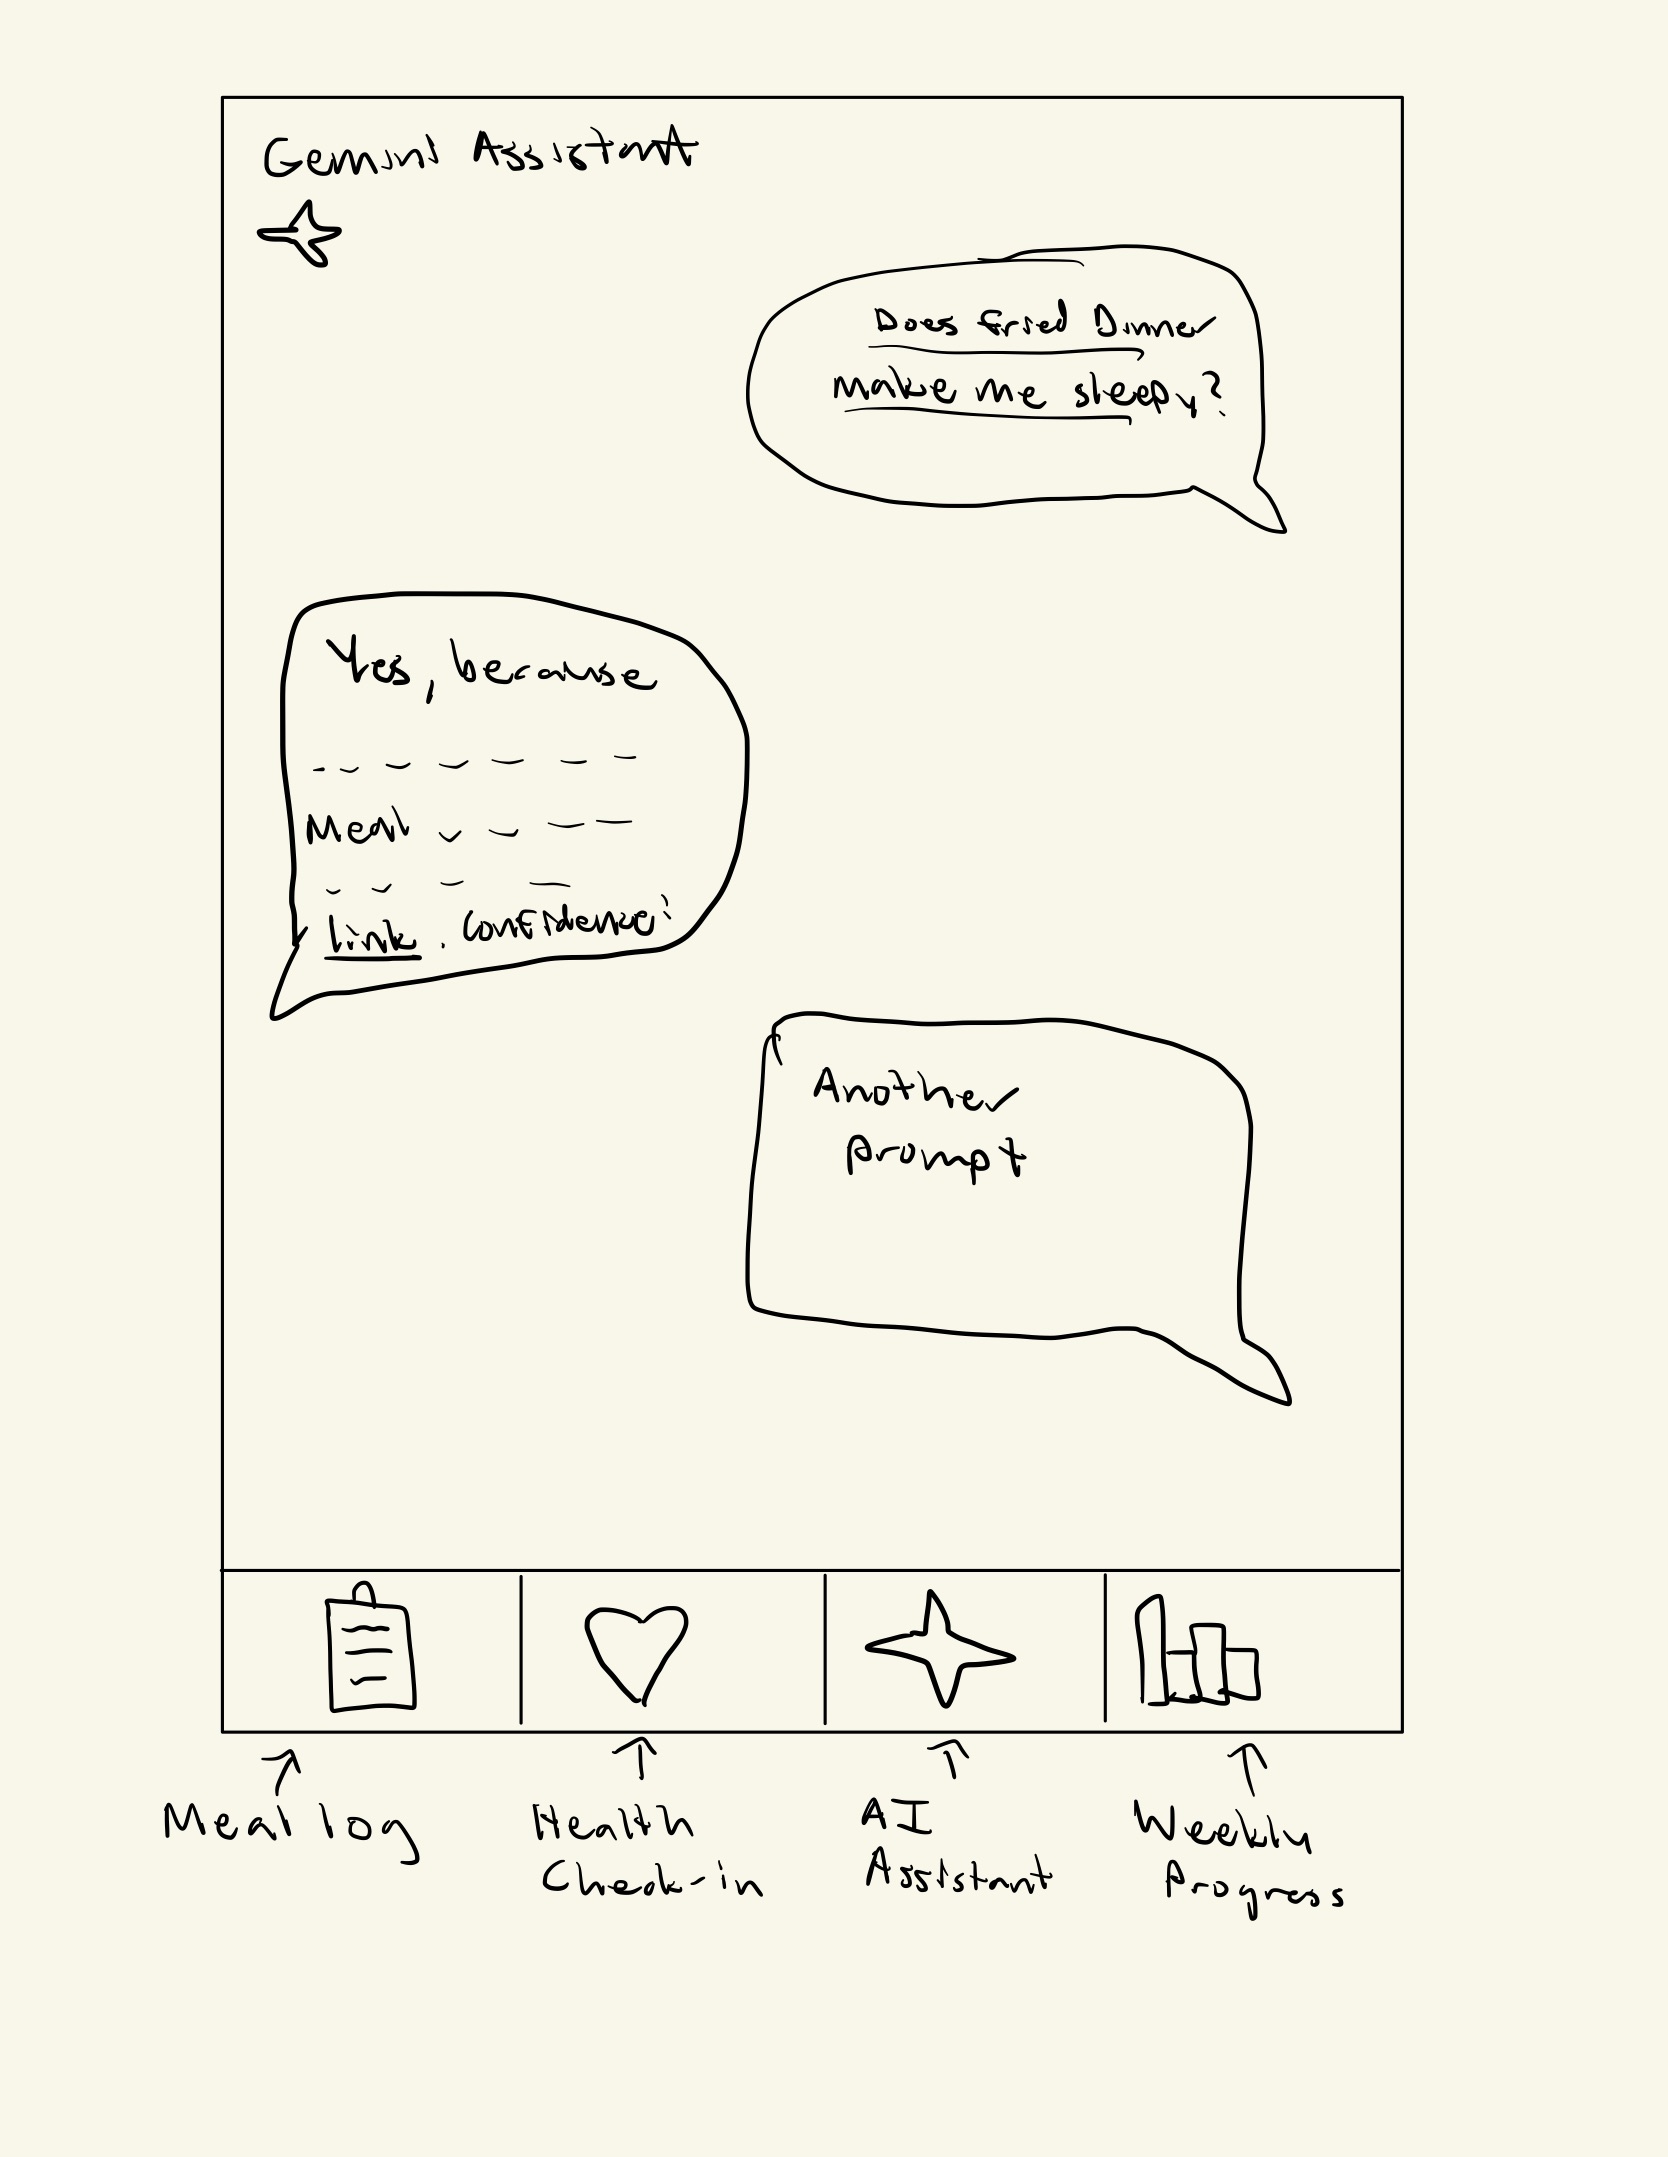 Gemini Assistant
Does fried Dinner
make me sleepy?
Yes, because
Meal
link. confidence:
Another
prompt
Meal log
Health
Check-in
AI
Assistant
Weekly
Progress